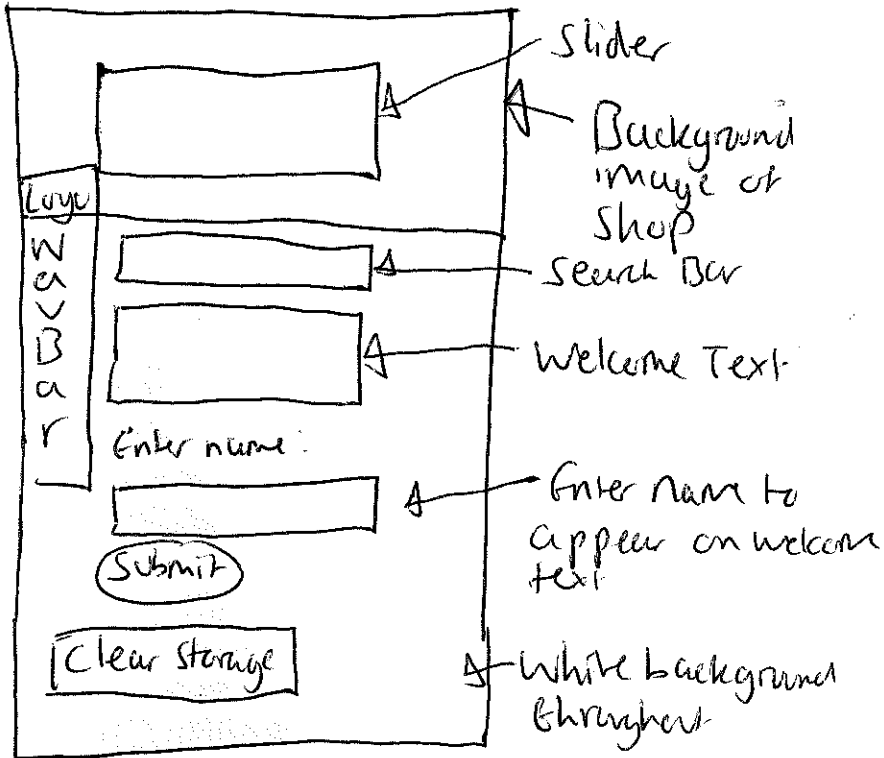 Slider
Background
image of
Shop
Logo
NavBar
Search Bar
Welcome Text
Enter name:
Enter name to
appear on welcome
text
Submit
Clear Storage
White background
throughout